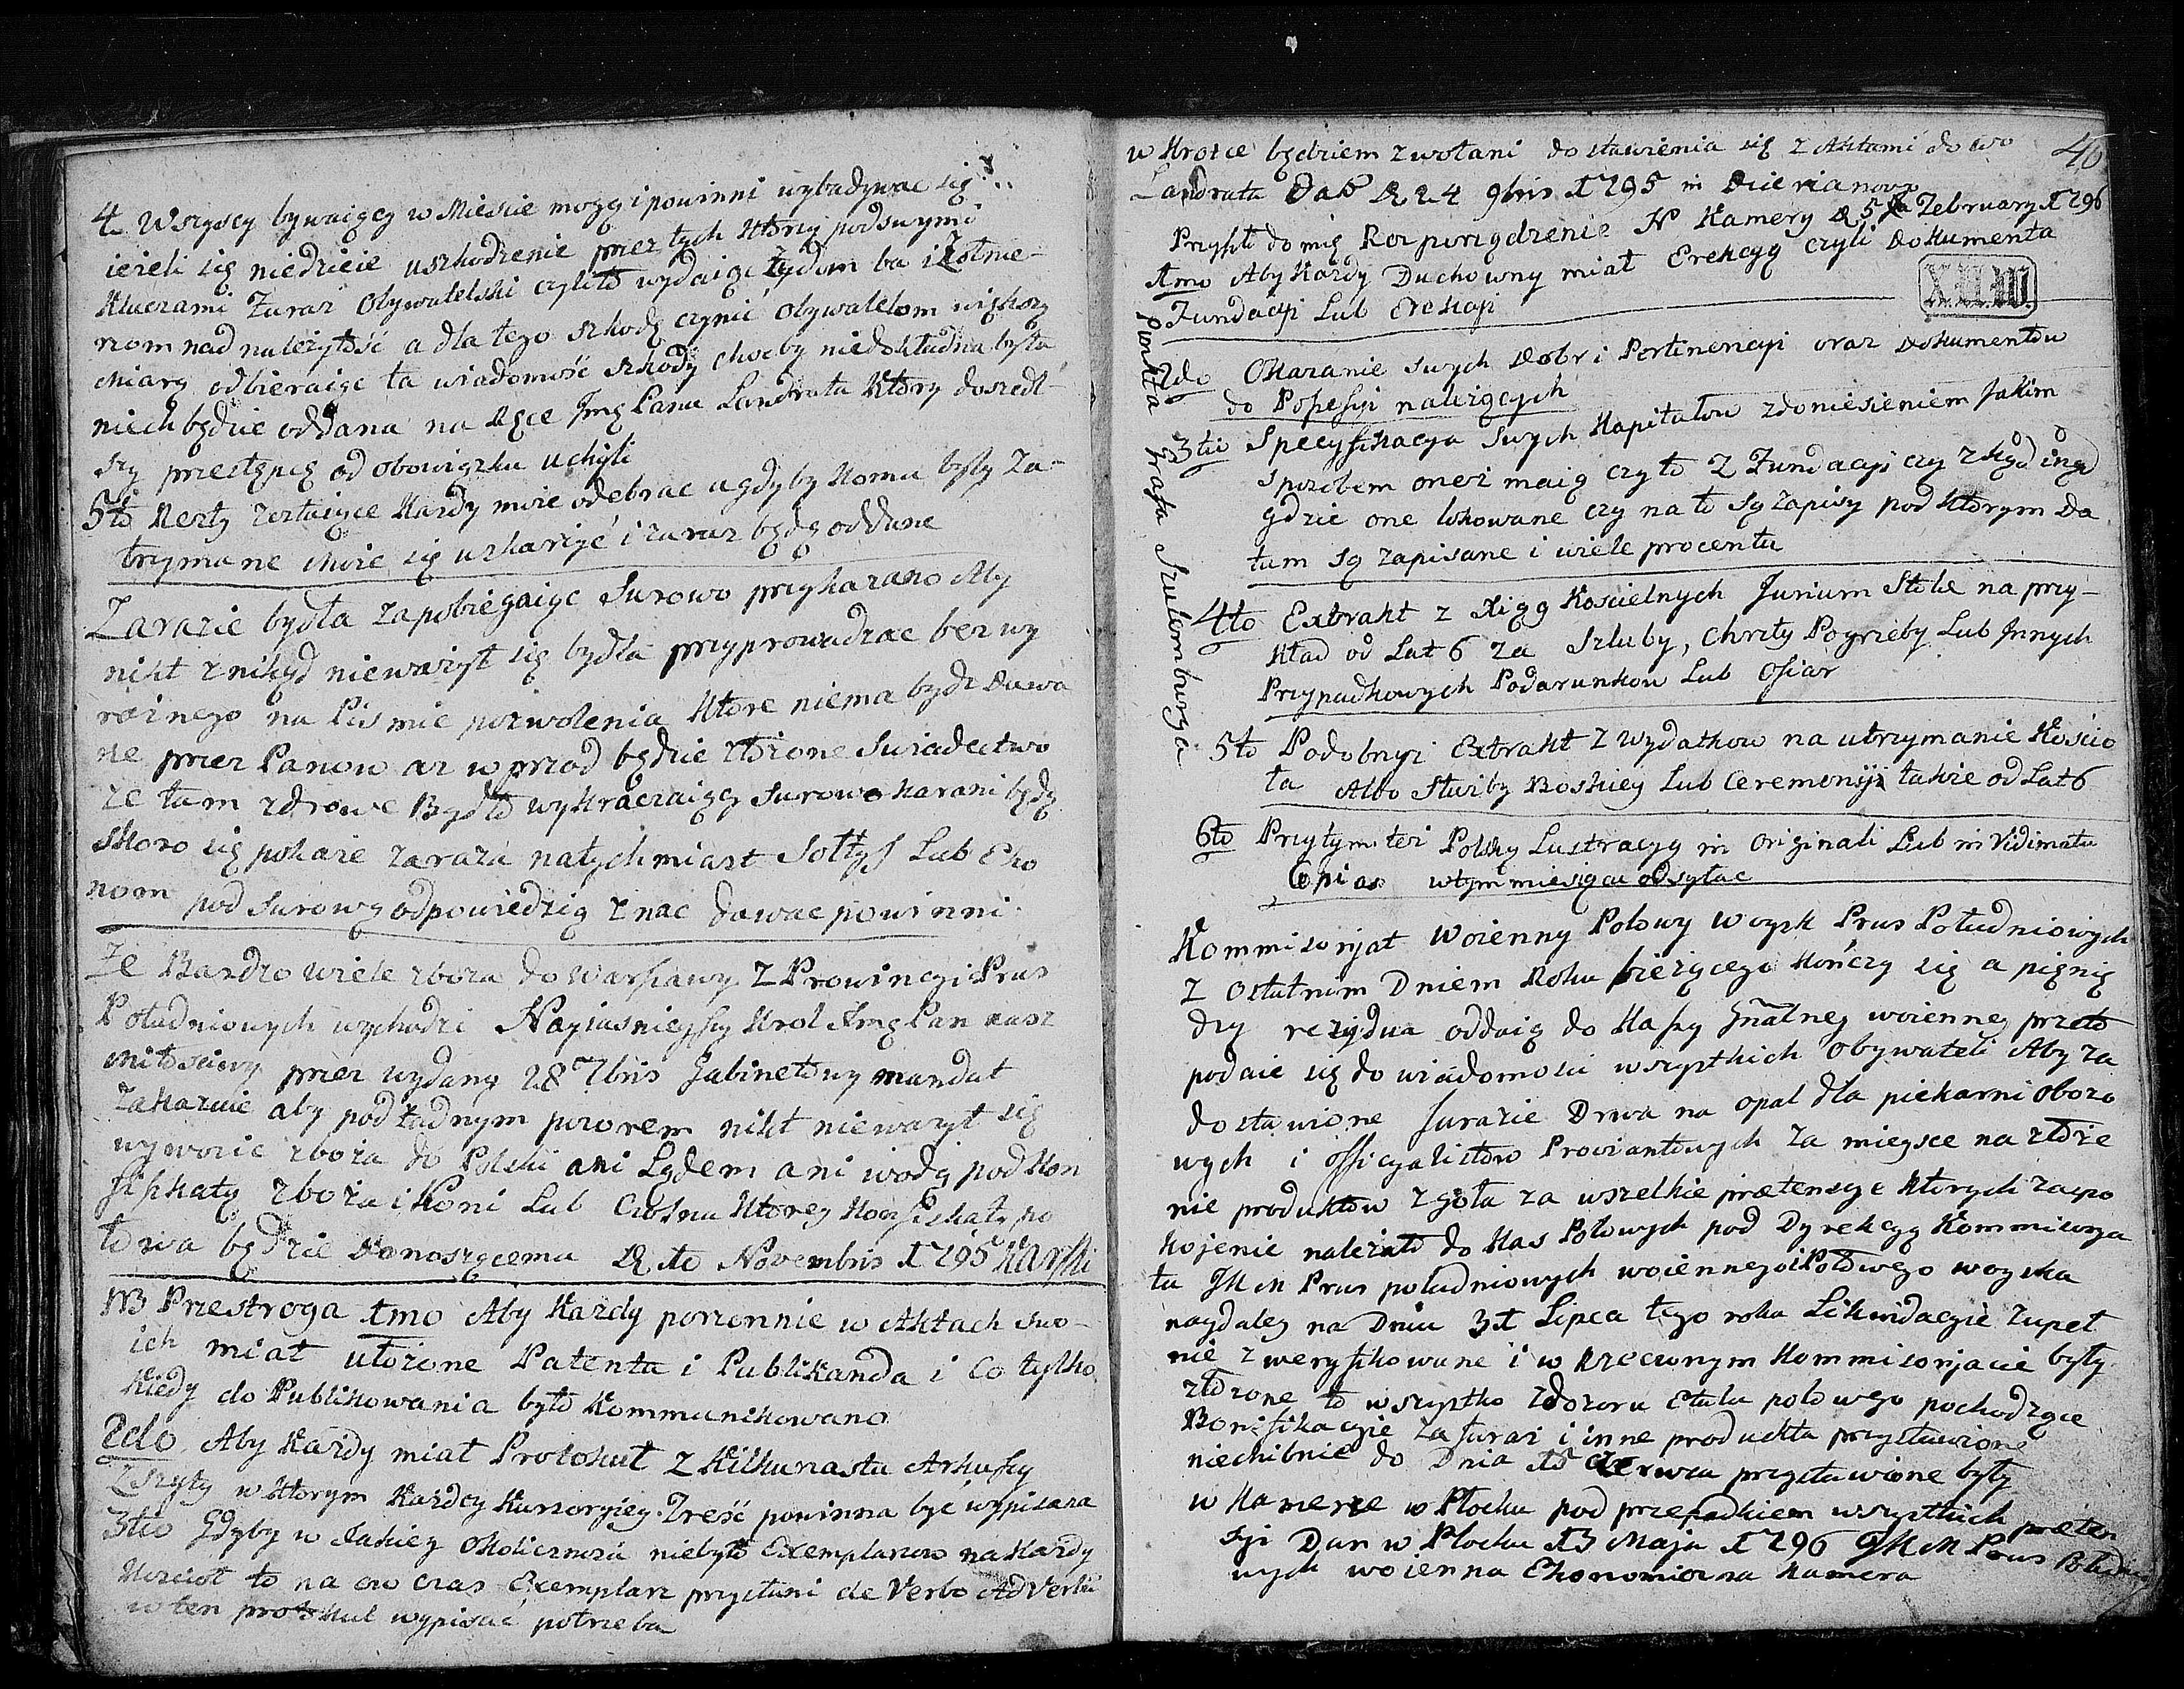 4 Wszyscy bywaiący w Miescie mogą i powinni wybadywac się
ieżeli się niedzieie uszkodzenie przez tych Którzy pod swymi
Kluczami Furaz Obywatelski czyli to wydaiąc Żydom ba i Żołnie-
rzom nad należytość a dla tego szkodę czynić obywatelom większą
miarą odbieraiąc ta wiadomość szkody choćby niedokładna była
niech będzie oddana na Ręce Jmę Pana Landrata Który doszedł-
szy przestępcę od obowiązku uchyli
5to Reszty zostaiące Każdy może odebrac a gdyby Komu były za-
trzymane może się uskarżyć i zaraz będą oddane
Zarazie bydła zapobiegaiąc Surowo przykazano Aby
nikt z nikąd nieważył się bydła przyprowadzac bez wy
raźnego na Pismie pozwolenia Które niema bydz dawa
ne przez Panow az w przod będzie złożone Swiadectwo
że tam zdrowe Bydło wykraczaiący surowo karani będą
skoro się pokaże zaraza natychmiast Sołtys Lub Eko
nom pod surową odpowiedzią znac dawac powinni
Że Bardzo wiele zboża do Warszawy Z Prowincyi Prus
Południowych wychodzi Nayiasnieyszy Krol Jmę Pan nasz
miłosciwy przez wydany 28 7bris Gabinetowy mandat
zakazuie aby pod żadnym pozorem nikt nieważył się
wywozic zboża do Polski ani Lądem ani wodą pod Kon
fiskatą zboża i Koni Lub Czołnu Którey Konfiskaty po
łowa będzie Donoszącemu D 10 Novembris 1795 Karski
NB Przestroga 1mo Aby Kazdy porzonnie w Aktach swo-
ich miał ułożone Patenta i Publikanda i Co tylko
Kiedy do Publikowania było Kommunikowano
2do Aby Każdy miał Protokuł Z Kilkunastu Arkuszy
Zszyty w Którym Każdey Kurzoryiey Treść powinna być wypisana
3tio Gdyby w Jakiey Okolicznosci niebyło Exemplarzow na Kazdy
Kościoł to na on czas Exemplarz przysłani de Verbo Ad Verbu
w ten protokuł wypisać potrzeba
46
w Krotce będziem zwołani do stawienia się z Aktami do Wo
Landrata Dat D 24 9bris 1795 in Dzierzanowo
Przyszło do mię Rozporządzenie N Kamery D 5 February 1796
1mo Aby Kazdy Duchowny miał Erekcyą czyli Dokumenta
Fundacyi Lub Erekcyi
Punkta Grafa Szulemburga
2do Okazanie swych Dobr i Pertinencyi oraz Dokumentow
do Possessyi należących
3tio Specyfikacya swych Kapitałow z doniesieniem Jakim
sposobem oneż maią czy to Z Fundacyi czy zkąd inąd
gdzie one lokowane czy na to są zapisy pod Ktorym Da
tum są zapisane i wiele procentu
4to Extrakt z Xiąg Koscielnych Jurium Stole na przy-
kład od Lat 6 za Szluby, Chrzty Pogrzeby Lub Innych
Przypadkowych Podarunkow Lub Ofiar
5to Podobnyi Extrakt Z wydatkow na utrzymanie Koscio
ła Albo Służby Boskiey Lub Ceremonyi takze od Lat 6
6to Przytym teź Polską Lustracyą in Originali Lub in Vidimata
Copia w tym miesiącu odsyłac
Kommisoryat Woienny Polowy Woysk Prus Południowych
Z Ostatnim Dniem Roku bieżącego kończy się a pienię
dzy rezydua oddaią do Kassy Gnalney woienney przeto
podaie się do wiadomosci wszystkich Obywateli Aby za
dostawione furaże Drwa na opał dla piekarni Obozo
wych i Officyalistow Prowiantowych Za mieysce na złoże
nie produktow zgoła za wszelkie prætensye których zaspo
kojenie należało do Kas Polowych pod Dyrekcyą Kommisorya
tu JKM Prus południowych woiennego i Polowego woyska
naydaley na Dniu 31 Lipca tego roku Likwidacyie zupeł
nie zweryfikowane i w Rzeczonym Kommisoryacie były
złozone to wszystko z dozoru Etatu polowego pochodzące
Bonifikacyie za furaz i inne produkta przystawione
niechibnie do Dnia 10 Czerwca przystawione były
w Kamerze w Płocku pod przepadkiem wszystkich præten
syi Dan w Płocku 13 Maja 1796 JKM Prus Południo
wych woienna Ekonomiczna Kamera